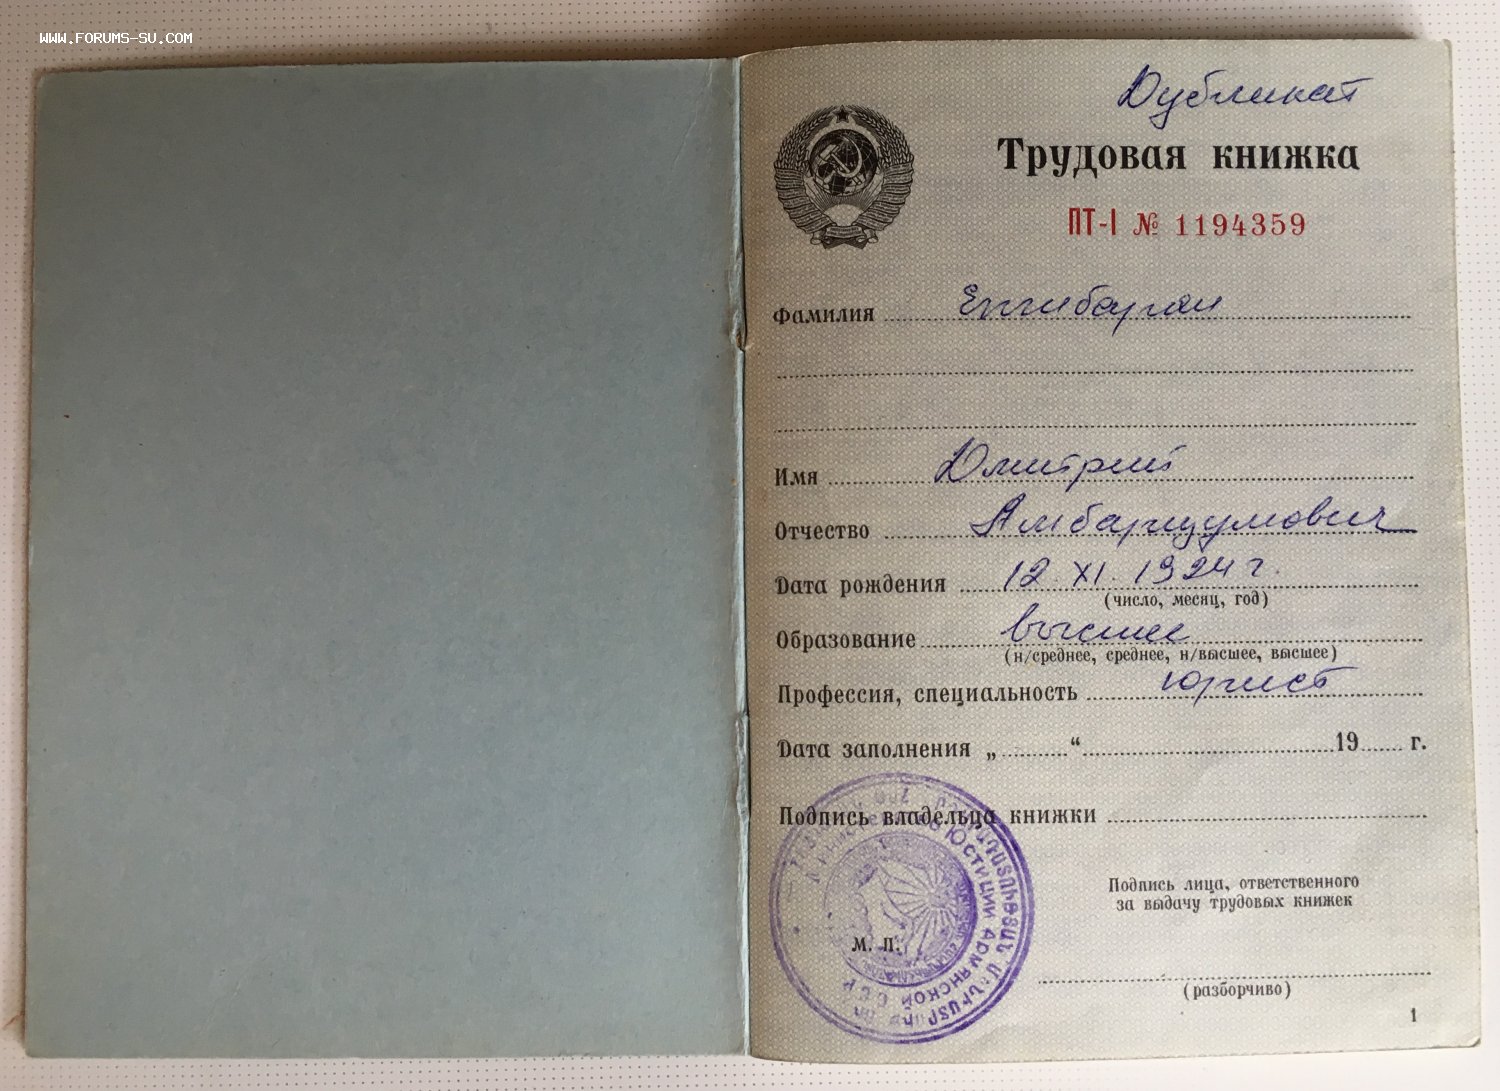 WWW.FORUMS-SU.COM
Дубликат
Трудовая книжка
ПТ-I № 1194359
Фамилия Енгибарян
Имя Дмитрий
Отчество Амбарцумович
Дата рождения 12. XI. 1924 г.
(число, месяц, год)
Образование высшее
(н/среднее, среднее, н/высшее, высшее)
Профессия, специальность юрист
Дата заполнения „ “ 19 г.
Подпись владельца книжки
Министерство Юстиции Армянской ССР
Подпись лица, ответственного
за выдачу трудовых книжек
М. П.
(разборчиво)
1